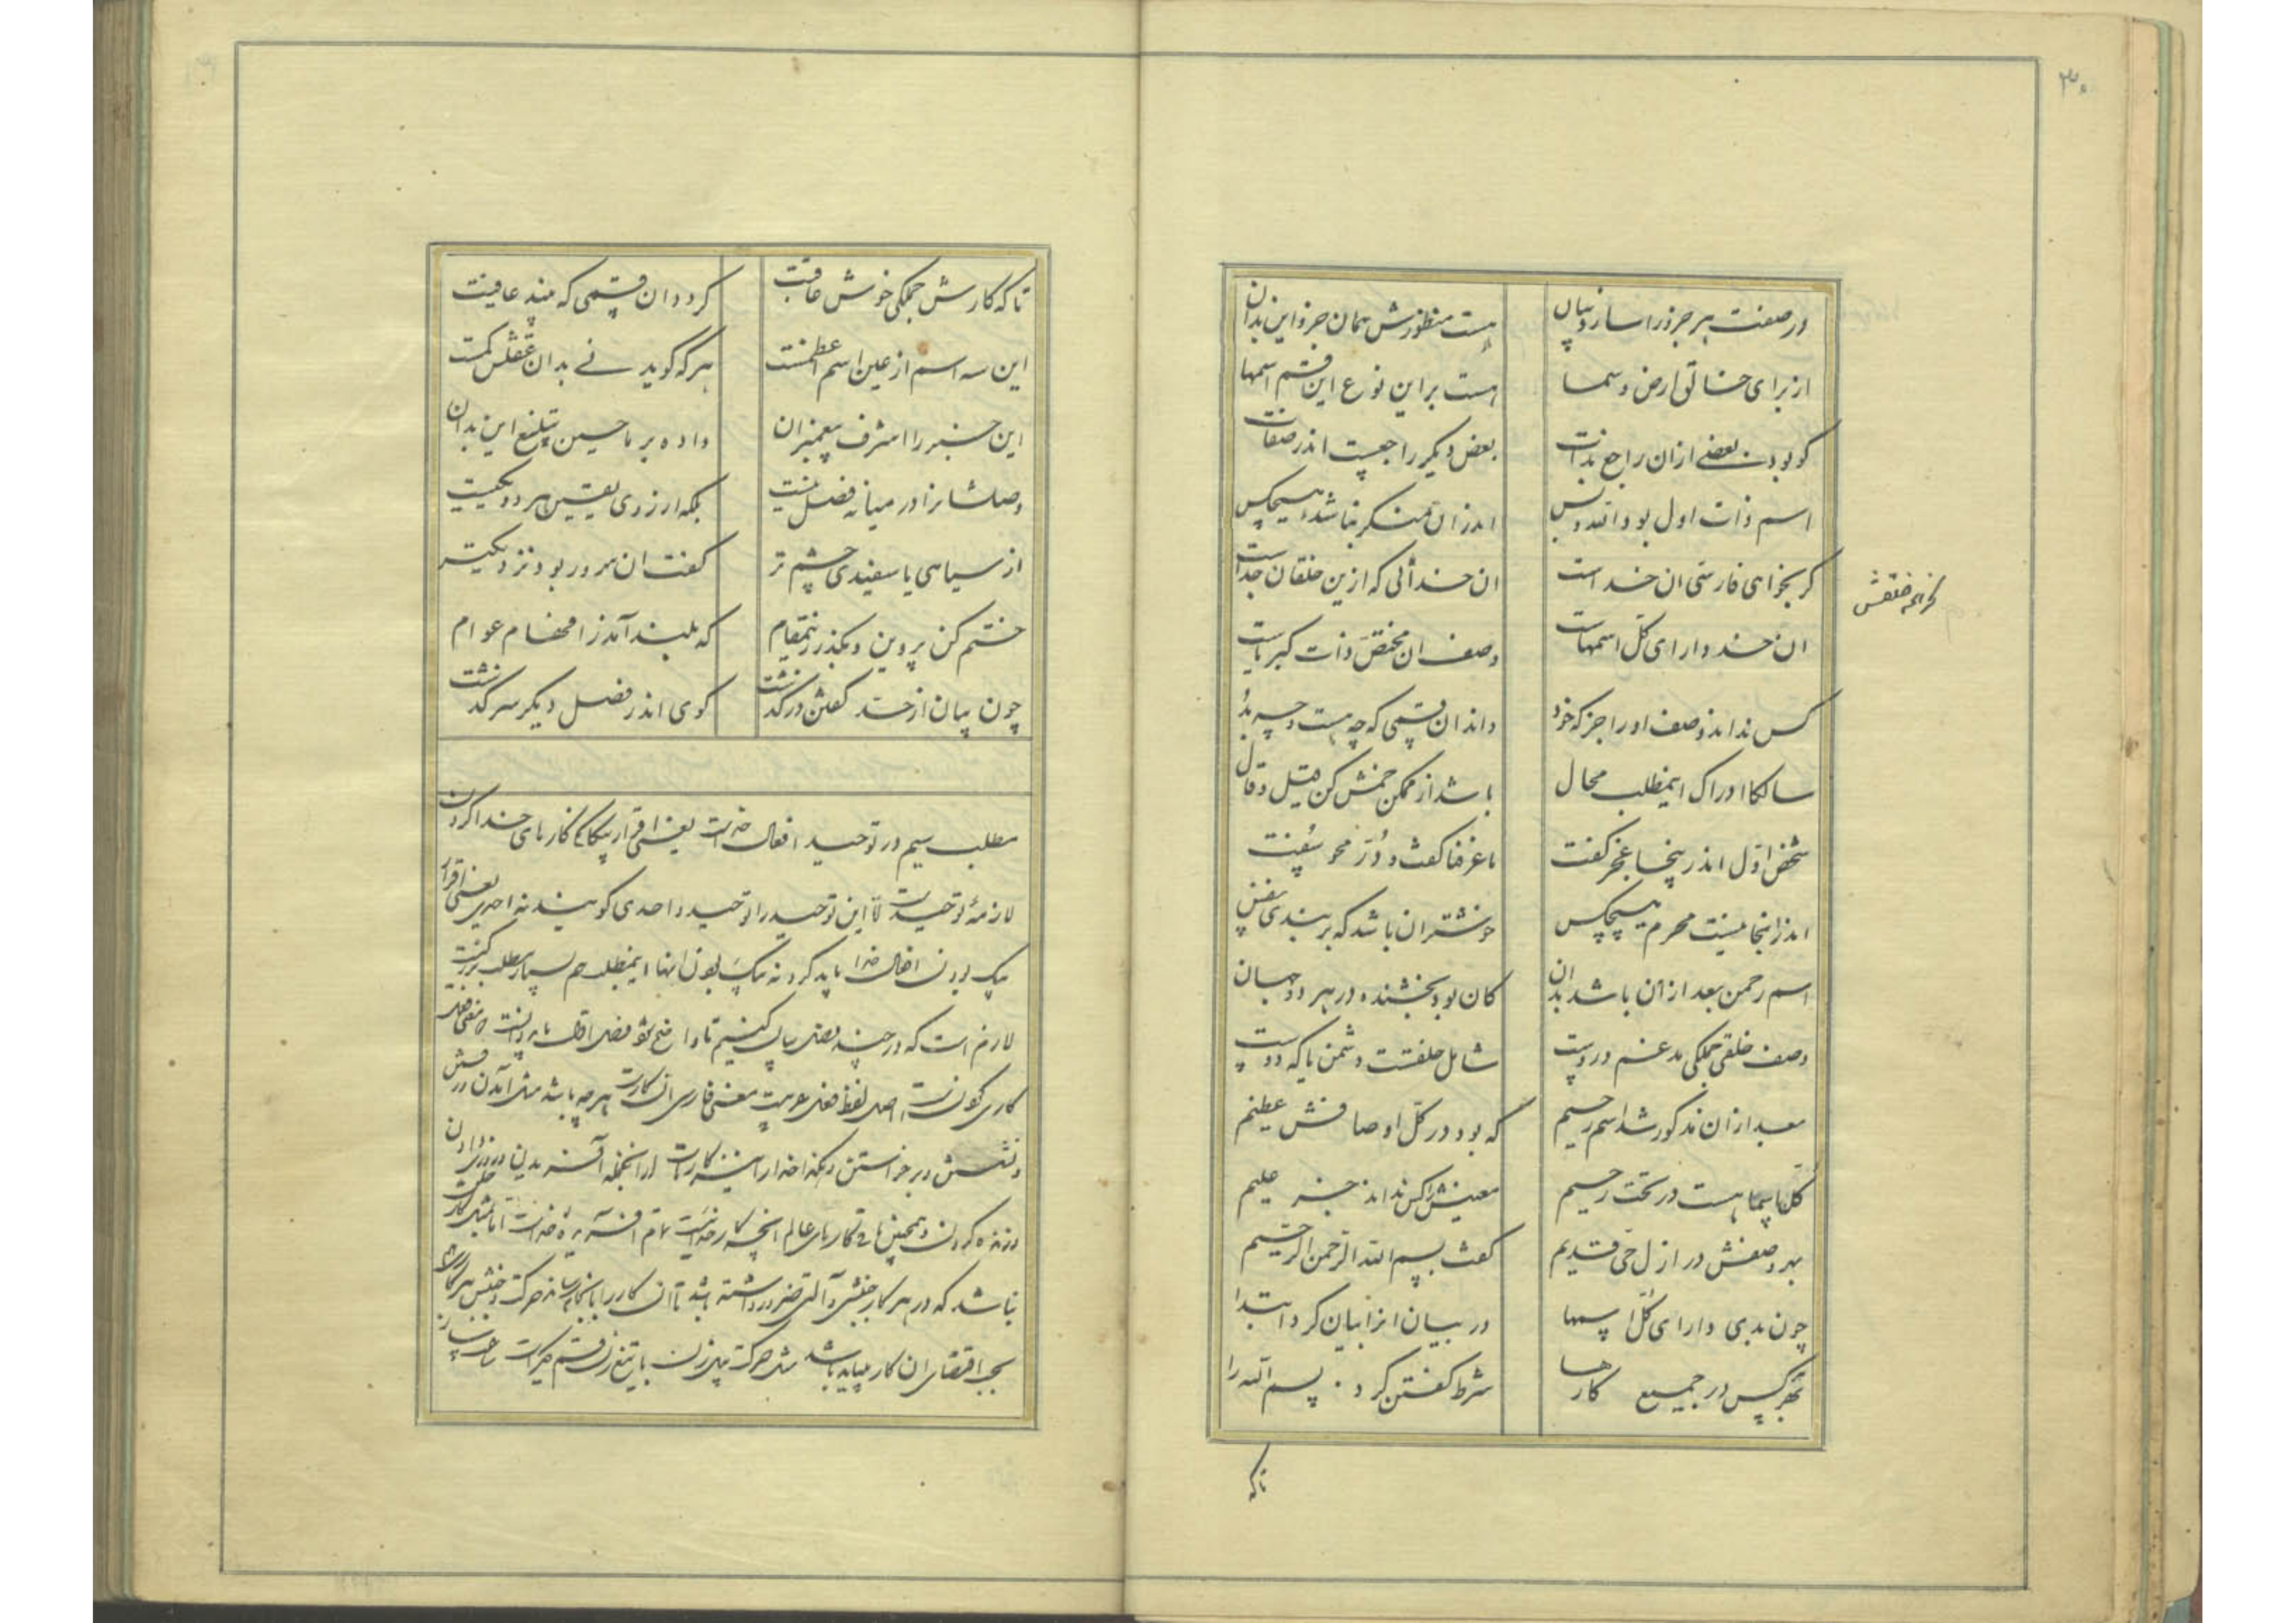 ۳۰
در صفت هر جزو را سازد بیان
هست منظورش همان جزو این بدان
از برای خالق ارض و سما
هست بر این نوع این قسم اسمها
کو بود بعضی ازان راجع بذات
بعض دیگر راجعست اندر صفات
اسم ذات اول بود الله و بس
اندران منکر نباشد هیچکس
گر بخواهی فارسی ان خداست
ان خدائی که ازین خلقان جداست
ان خدا دارای کل اسمهاست
وصف ان مختص ذات کبریاست
کس نداند وصف او را جز که خود
داند ان قسمی که چه هست و چه بد
سالکا ادراک اینمطلب محال
باشد از ممکن خمش کن قیل و قال
شخص اول اندر ینجا عجز گفت
ما عرفنا گفت و در محو سفت
اندر اینجا نیست محرم هیچکس
خوشتر ان باشد که بربندی نفس
اسم رحمن بعد ازان باشد بدان
کان بود بخشنده در هر دو جهان
وصف خلقی جملگی مدغم دروست
شامل خلقست دشمن یا که دوست
بعد ازان مذکور شد اسم رحیم
که بود در کل اوصافش عظیم
کل اسما هست در تحت رحیم
معنیش را کس نداند جز علیم
بهر وصفش در ازل حی قدیم
گفت بسم الله الرحمن الرحیم
چون بدی دارای کل اسمها
در بیان انرا بیان کرد ابتدا
بهر کس در جمیع کارها
شرط گفتن کرد بسم الله را
تا که
تا که کارش جملگی خوش عاقبت
گردد ان قسمی که بیند عافیت
این سه اسم از عین اسم اعظمست
هر که گوید نی بدان عقلش کمست
این خبر را اشرف پیغمبران
داده بر ما حسین تبلیغ این بدان
وصلشانرا در میانه فصل نیست
بلکه از روی یقین هر دو یکیست
از سیاهی با سفیدی چشم تر
گفت ان سرور بود نزدیکتر
ختم کن پروین و بگذر زینمقام
که بلند آمد ز افهام عوام
چون بیان از حد گفتن درگذشت
گوی اندر فصل دیگر سرگذشت
مطلب سیم در توحید افعال خداست یعنی اقرار بیکتائی کارهای خدا کردن
لازمه توحیدست لا این توحید را توحید واحدی گویند نه احدی یعنی اقرار
یک بودن افعال خدا باید کرد نه یک بودن انها اینمطلب هم بسیار مطلب بزرگیست
لازم است که در چند فصل بیان کنیم تا واضح شود فصل اول باید دانست که معنی فعل
کاری کردن است اصل لفظ فعل عربیست معنی فارسی ان کارست هر چه باشد مثل آمدن و رفتن
و نشستن و برخواستن و خدا را نیز کارهاست ازانجمله آفریدن و روزی دادن
و زنده کردن و همچنین باقی کارهای عالم انچه کار خداست تمام آفریده خداست اما مثل کار خلقت
نباشد که در هر کار جنبشی و آلتی ضرور داشته باشد تا ان کار را بانجام رساند حرکت و جنبش هر کاری
بحسب اقتضای ان کار میباید باشد مثل حرکت بیل زدن یا تیغ زدن